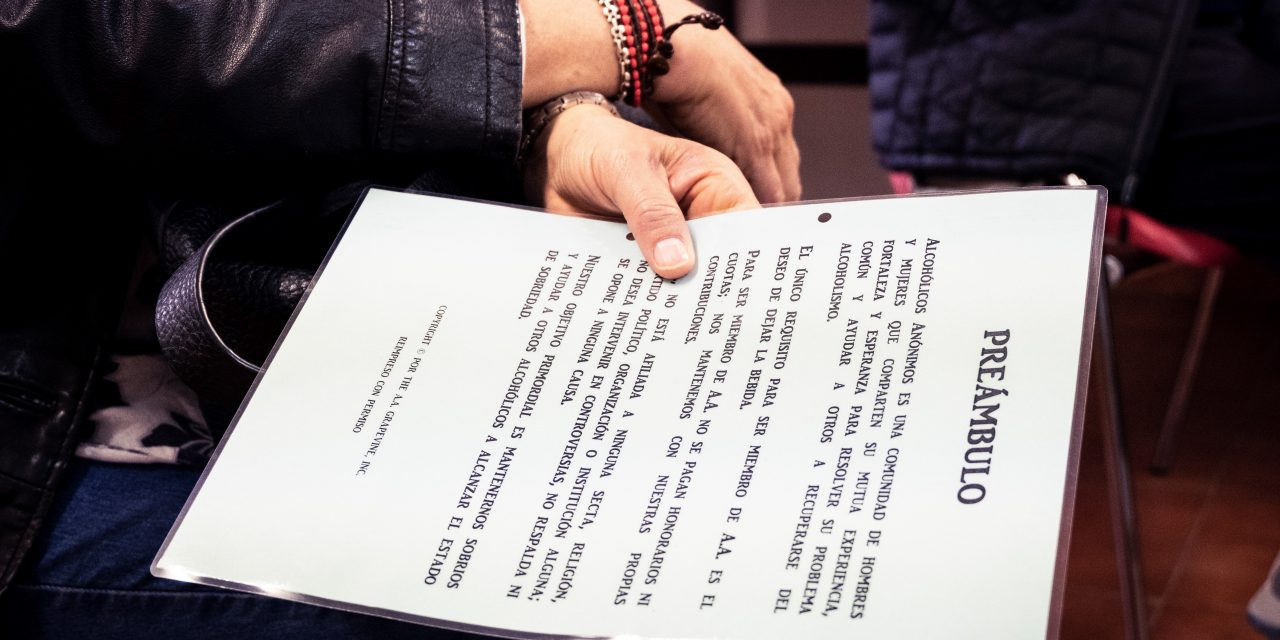 PREÁMBULO
ALCOHÓLICOS ANÓNIMOS ES UNA COMUNIDAD DE HOMBRES
Y MUJERES QUE COMPARTEN SU MUTUA EXPERIENCIA,
FORTALEZA Y ESPERANZA PARA RESOLVER SU PROBLEMA
COMÚN Y AYUDAR A OTROS A RECUPERARSE DEL
ALCOHOLISMO.
EL ÚNICO REQUISITO PARA SER MIEMBRO DE A.A. ES EL
DESEO DE DEJAR LA BEBIDA.
PARA SER MIEMBRO DE A.A. NO SE PAGAN HONORARIOS NI
CUOTAS; NOS MANTENEMOS CON NUESTRAS PROPIAS
CONTRIBUCIONES.
NO ESTÁ AFILIADA A NINGUNA SECTA, RELIGIÓN,
POLÍTICO, ORGANIZACIÓN O INSTITUCIÓN ALGUNA;
NO DESEA INTERVENIR EN CONTROVERSIAS, NO RESPALDA NI
SE OPONE A NINGUNA CAUSA.
NUESTRO OBJETIVO PRIMORDIAL ES MANTENERNOS SOBRIOS
Y AYUDAR A OTROS ALCOHÓLICOS A ALCANZAR EL ESTADO
DE SOBRIEDAD.
COPYRIGHT © POR THE A.A. GRAPEVINE, INC.
REIMPRESO CON PERMISO